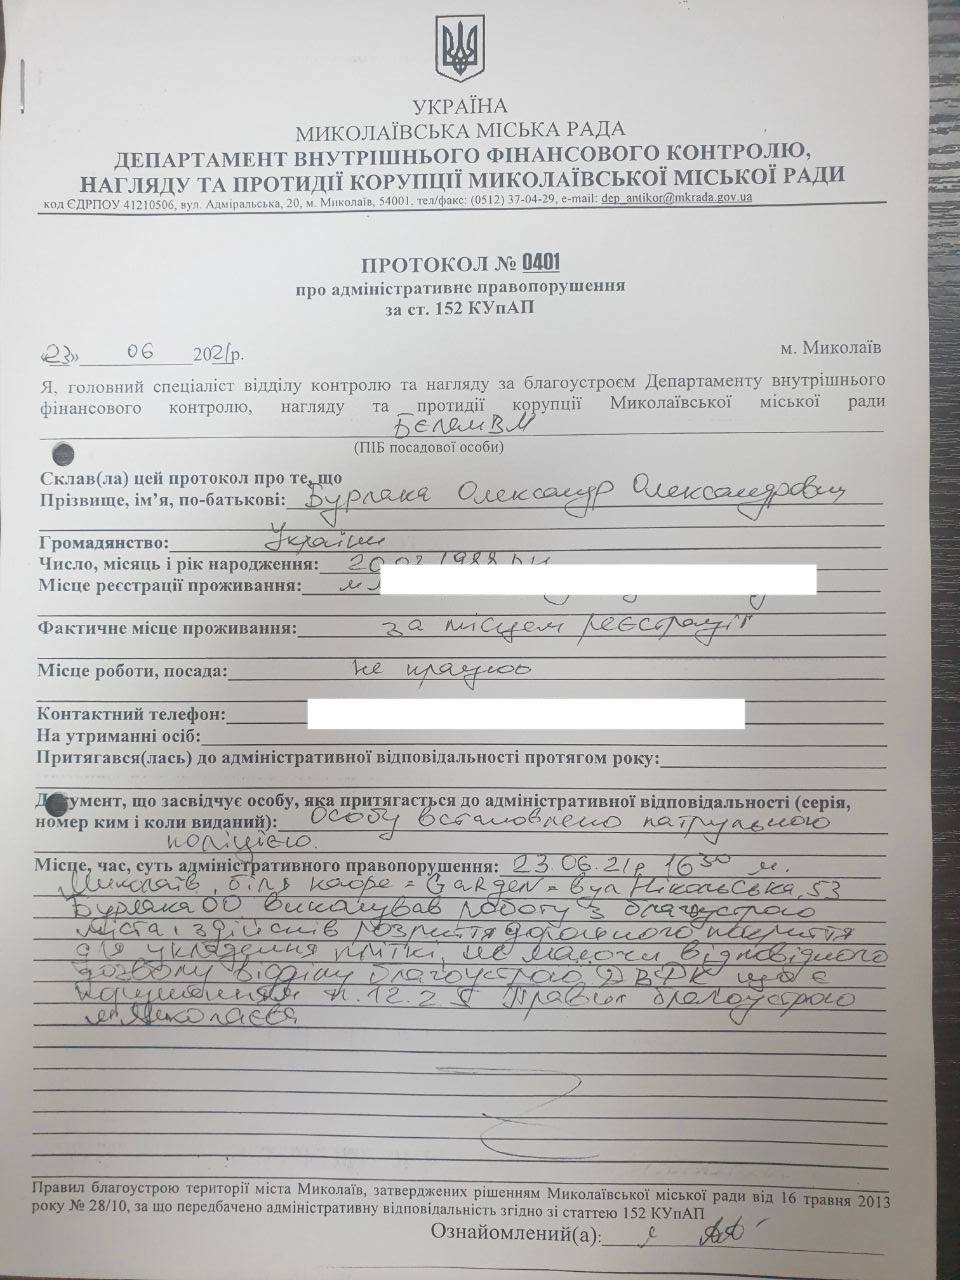 УКРАЇНА
МИКОЛАЇВСЬКА МІСЬКА РАДА
ДЕПАРТАМЕНТ ВНУТРІШНЬОГО ФІНАНСОВОГО КОНТРОЛЮ,
НАГЛЯДУ ТА ПРОТИДІЇ КОРУПЦІЇ МИКОЛАЇВСЬКОЇ МІСЬКОЇ РАДИ
код ЄДРПОУ 41210506, вул. Адміральська, 20, м. Миколаїв, 54001, тел/факс: (0512) 37-04-29, e-mail: dep_antikor@mkrada.gov.ua
ПРОТОКОЛ № 0401
про адміністративне правопорушення
за ст. 152 КУпАП
«23» 06 2021р.
м. Миколаїв
Я, головний спеціаліст відділу контролю та нагляду за благоустроєм Департаменту внутрішнього
фінансового контролю, нагляду та протидії корупції Миколаївської міської ради
(ПІБ посадової особи)
Склав(ла) цей протокол про те, що
Прізвище, ім’я, по-батькові: Бурлака Олександр Олександрович
Громадянство: України
Число, місяць і рік народження:
Місце реєстрації проживання:
Фактичне місце проживання: за місцем реєстрації
Місце роботи, посада: не працюю
Контактний телефон:
На утриманні осіб:
Притягався(лась) до адміністративної відповідальності протягом року:
Документ, що засвідчує особу, яка притягається до адміністративної відповідальності (серія,
номер ким і коли виданий): Особу встановлено патрульною
поліцією.
Місце, час, суть адміністративного правопорушення: 23.06.21р 16 30 м.
Миколаїв, біля кафе "GARDEN" вул Нікольська, 53
Бурлака ОО виконував роботу з благоустрою
міста і здійснів розриття дорожнього покриття
для укладення плітки, не маючи відповідного
дозволу відділу благоустрою ДВФК що є
порушенням п. 12.2 Правил благоустрою
м. Миколаєва
Правил благоустрою території міста Миколаїв, затверджених рішенням Миколаївської міської ради від 16 травня 2013
року № 28/10, за що передбачено адміністративну відповідальність згідно зі статтею 152 КУпАП
Ознайомлений(а):